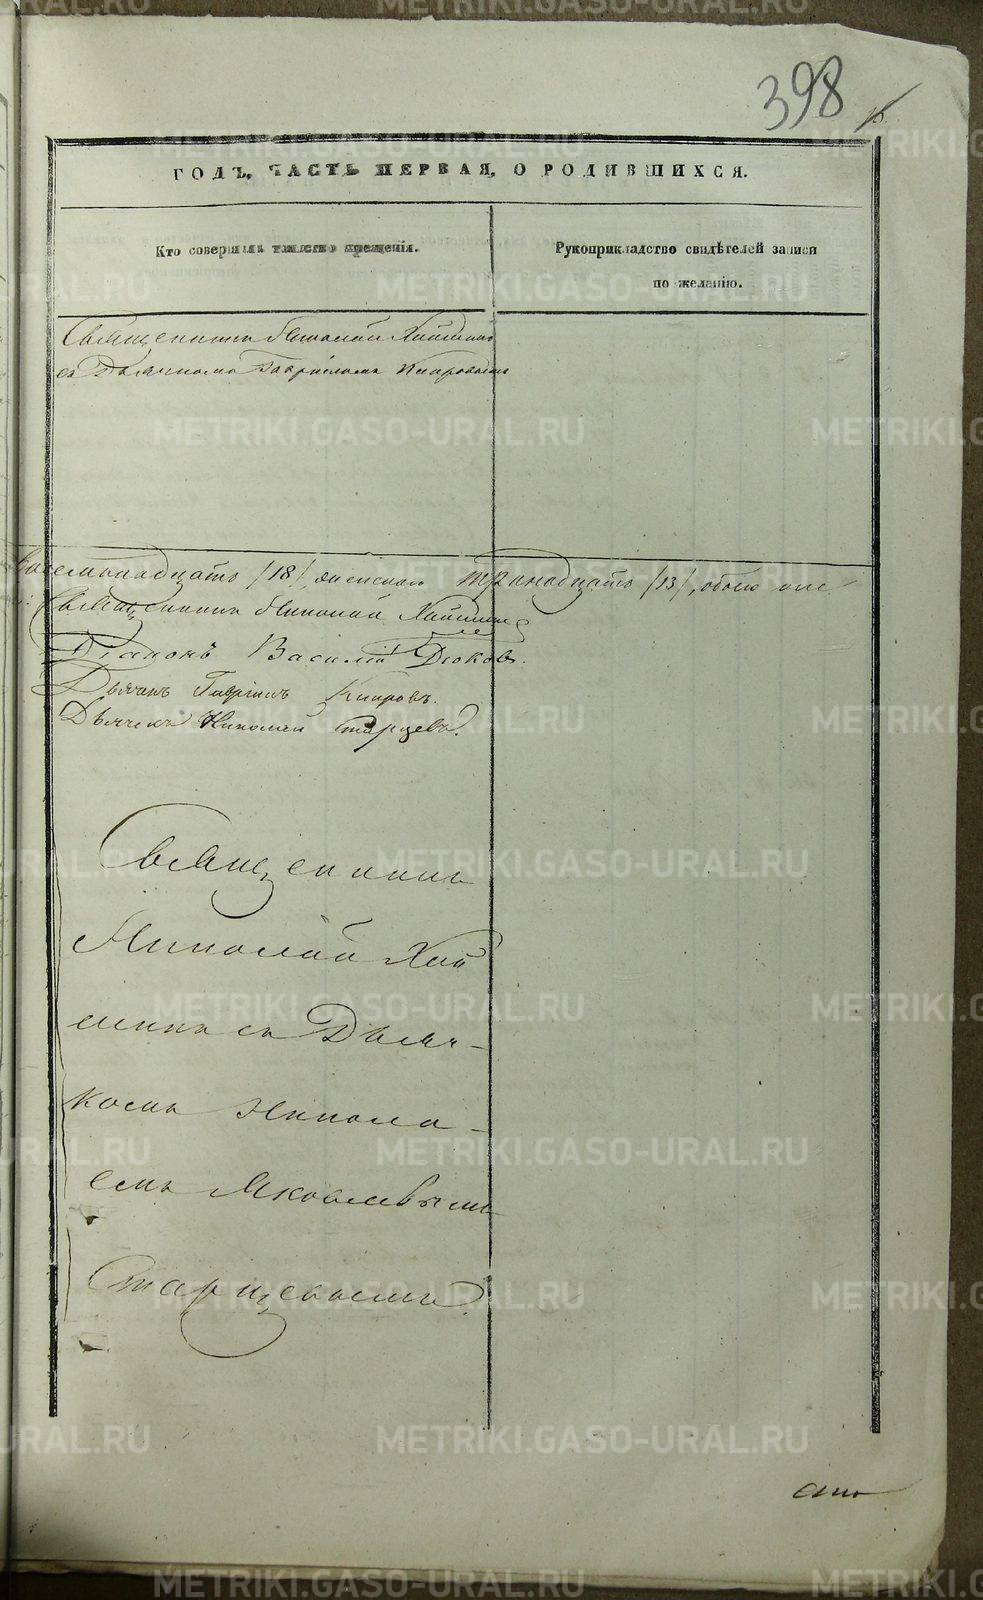 398
ГОДЪ, ЧАСТЬ ПЕРВАЯ, О РОДИВШИХСЯ.
Кто совершалъ таинство крещенія.
Рукоприкладство свидѣтелей записи
по желанію.
Священникъ Николай
съ Дьячкомъ Гавріиломъ Кипровымъ
Восемьнадцать /18/, женскаго тринадцать /13/, обоего
Священникъ Николай
Діаконъ Василій Дюковъ.
Дьячекъ Гавріилъ Кипровъ.
Дьячекъ Николай Старцевъ.
Священникъ
Николай Хай
минъ съ Дьяч-
комъ Никола-
емъ Яковлевымъ
Старцевымъ.
METRIKI.GASO-URAL.RU